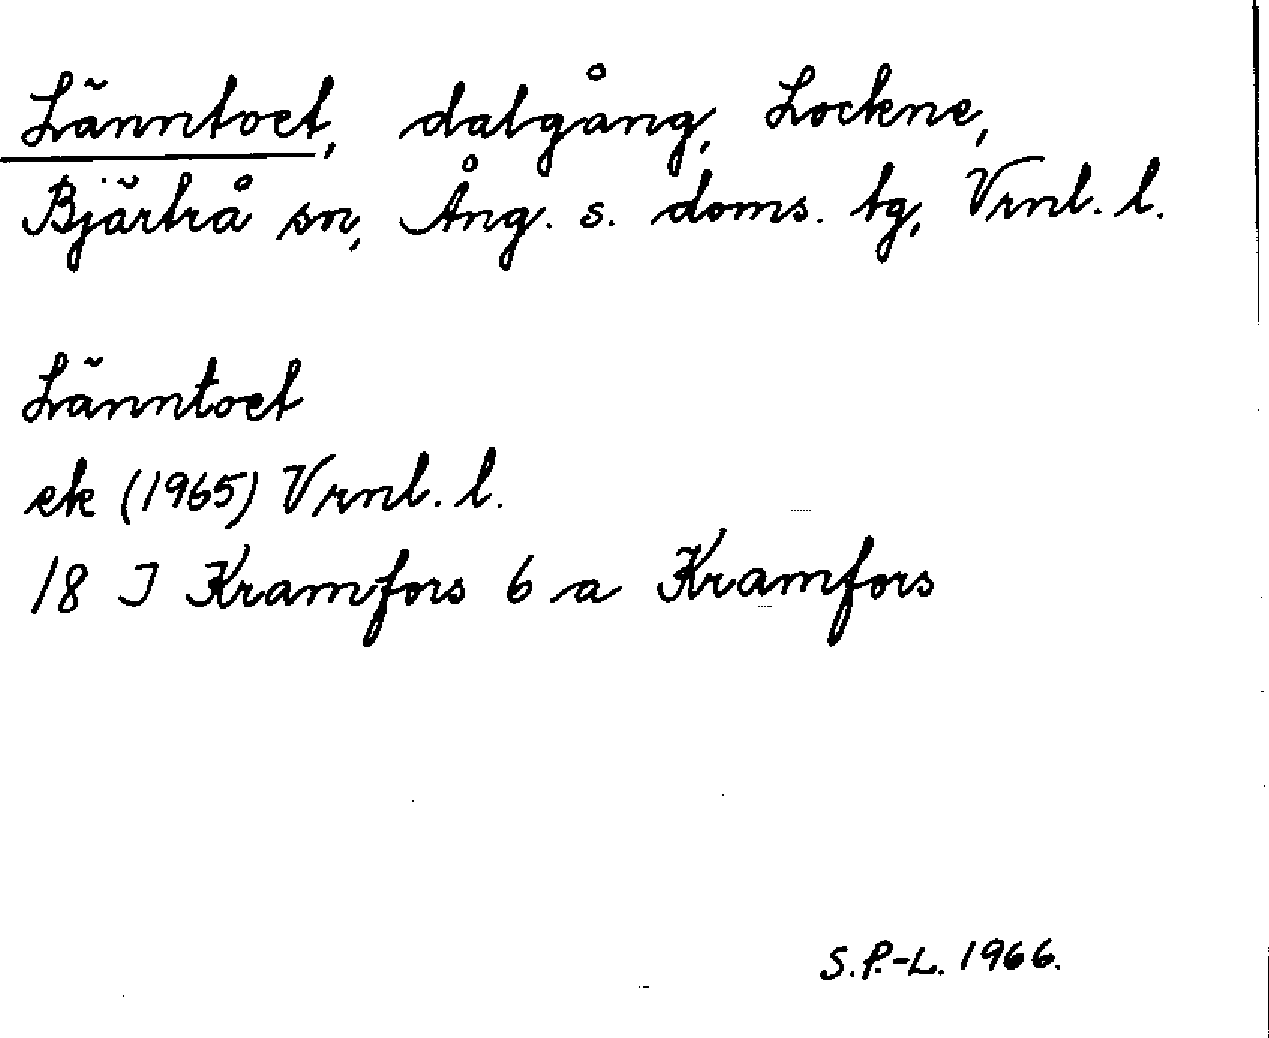 Länntoet, dalgång, Lockne,
Bjärtrå sn, Ång. s. doms. tg, Vrnl. l.
Länntoet
ek (1965) Vrnl. l.
18 I Kramfors 6 a Kramfors
S.P.-L. 1966.